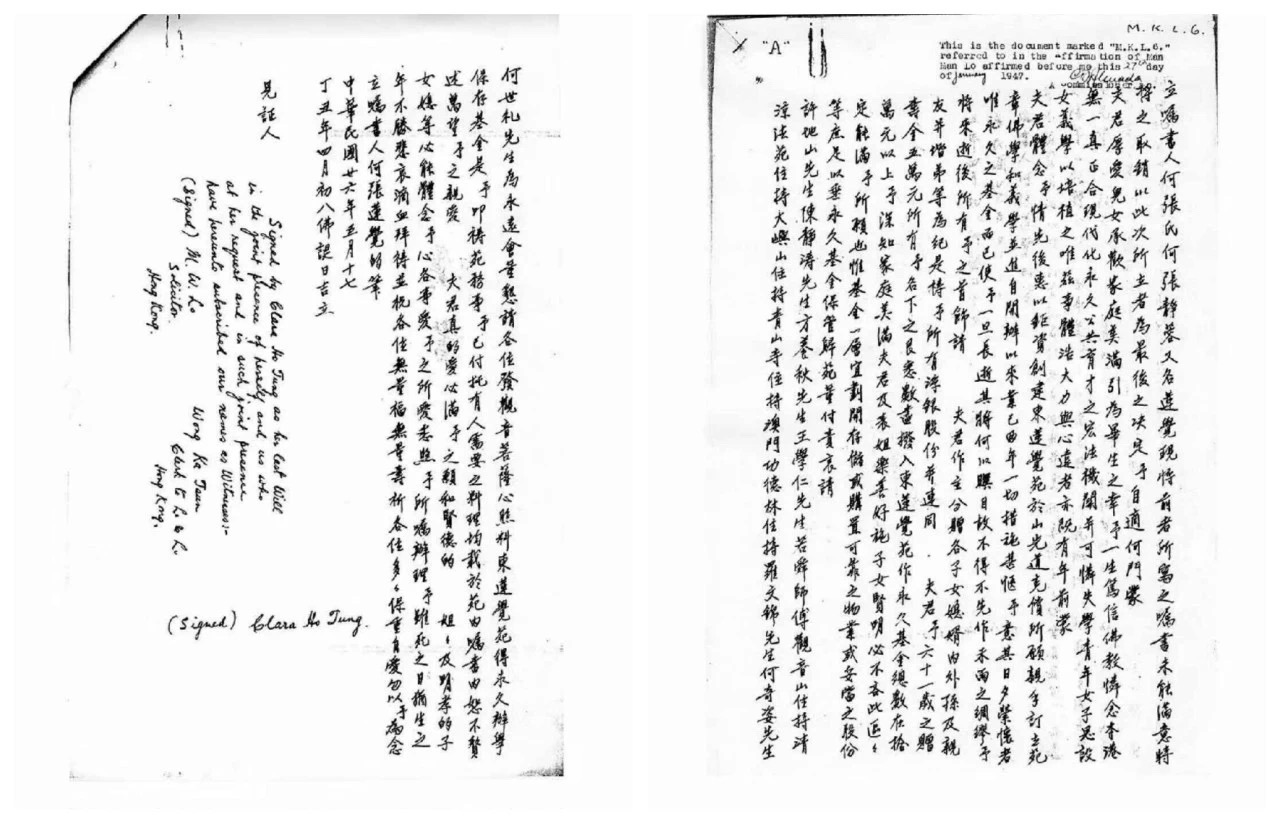 M. K. L. 6.
"A"
This is the document marked "M.K.L.6."
referred to in the affirmation of Man
Lo affirmed before me this 27th day
of January 1947.
A Commissioner
立囑書人何張氏何張靜蓉又名蓮覺現將前者所寫之囑書未能滿意特
將之取銷以此次所立者為最後之決定予自適何門蒙
夫君厚愛兒女承歡家庭美滿引為畢生之幸予一生篤信佛教憐念本港
無一真正合現代化永久公共育才之宏法機關并可憐失學青年女子思設
女義學以培植之唯茲事體浩大力與心違者亦既有年前蒙
夫君體念予情先後惠以鉅資創建東蓮覺苑於山光道克償所願親手訂立苑
章佛學和義學並進自開辦以來業已兩年一切措施甚愜予意其日夕縈懷者
唯永久之基金而已使予一旦長逝其將何以瞑目故不得不先作未雨之綢繆予
將來逝後所有予之首飾請 夫君作主分贈各子女媳婿內外孫及親
友并堦弟等為紀是禱予所有浮銀股份并連同 夫君予六十一歲之贈
壽金五萬元所有予名下之艮悉數盡撥入東蓮覺苑作永久基金總數在拾
萬元以上予深知家庭美滿夫君及表姐樂善好施子女賢明必不吝此區々
定能滿予所願也惟基金一層宜劃開存儲或購置可靠之物業或妥當之股份
等庶足以垂永久基金保管解苑董付責哀請
許地山先生陳靜濤先生方養秋先生王學仁先生若舜師傅觀音山住持清
涼法苑住持大嶼山住持青山寺住持澳門功德林住持羅文錦先生何奇姿先生
何世礼先生為永遠會董懇請各位發觀音菩薩心照料東蓮覺苑得永久辦學
保存基金是予叩禱苑務事予已付托有人需要之料理均載於苑內囑書內恕不贅
述萬望予之親愛 夫君真的愛心滿予之願和賢德的 姐々及明孝的子
女媳等心能體念予心各事愛予之所愛悉照予所囑辦理予雖死之日猶生之
年不勝悲哀滴血拜禱並祝各位無量福無量壽祈各位多々保重自愛勿以予為念
立囑書人何張蓮覺的筆
中華民國廿六年五月十七
丁丑年四月初八佛誕日吉立
見証人
Signed by Clara Ho Tung as her last Will
in the joint presence of herself and us who
at her request and in such joint presence
have hereunto subscribed our names as Witnesses:-
(Signed) M. W. Lo
Solicitor
Hong Kong.
Wong Ka Tsun
Clerk to L. & L.
Hong Kong.
(Signed) Clara Ho Tung.